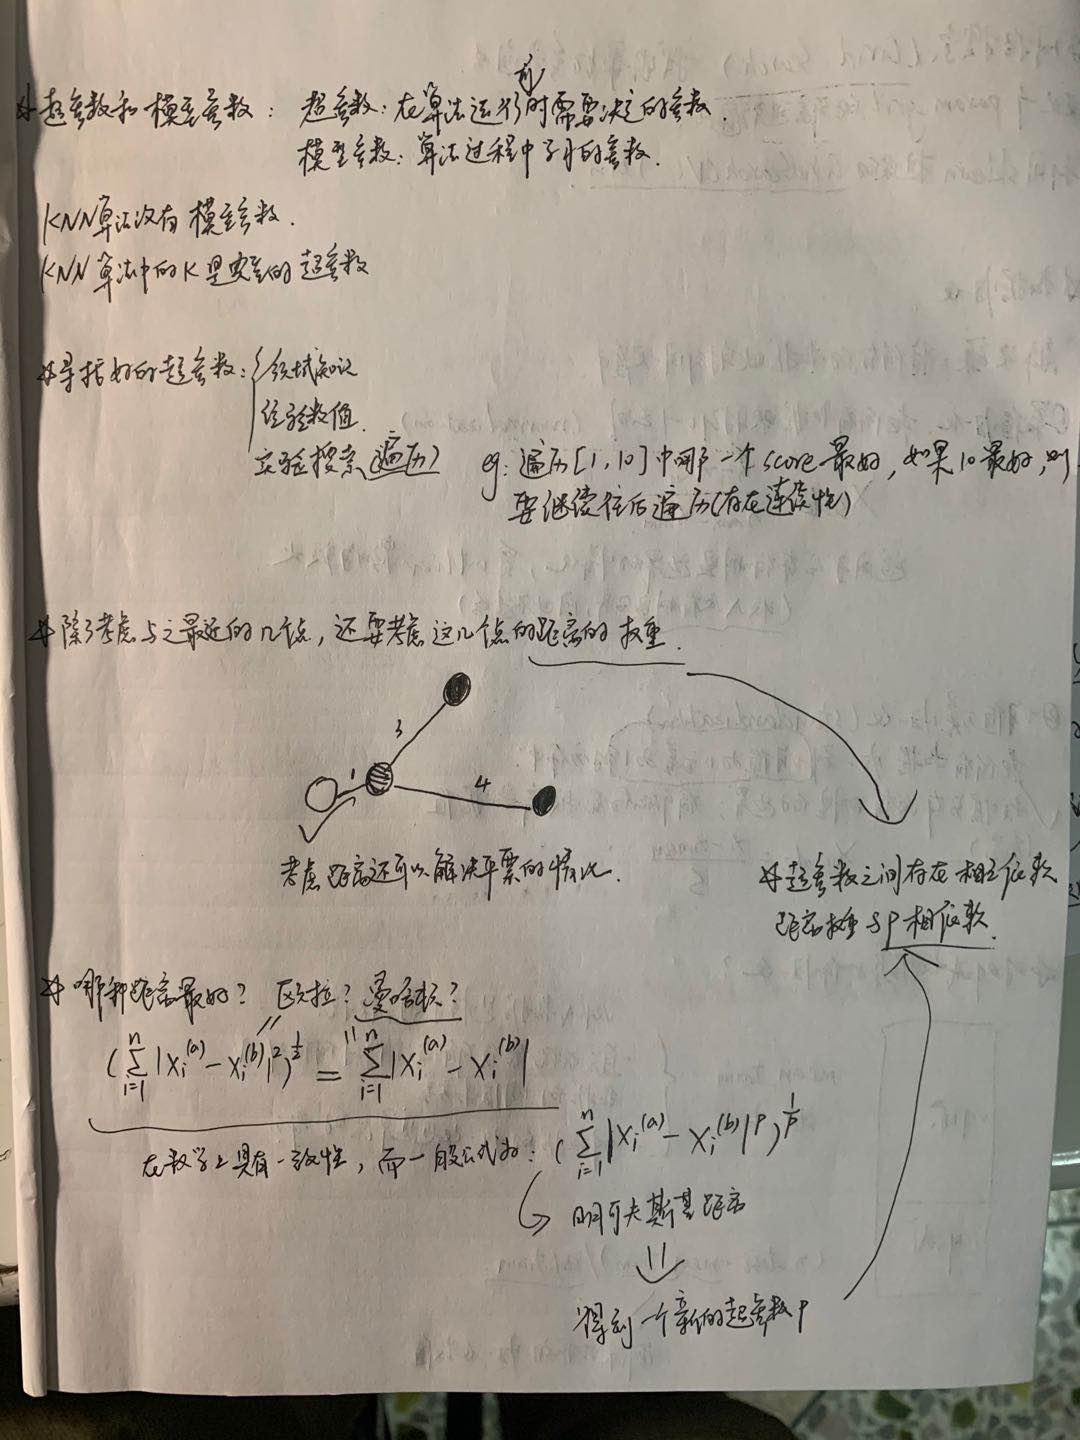 超参数和模型参数: 超参数: 在算法运行前时需要决定的参数.
模型参数: 算法过程中学习的参数.
KNN算法没有模型参数.
KNN算法中的K是典型的超参数
寻找好的超参数: 领域知识
经验数值.
实验搜索(遍历) eg: 遍历[1,10]中哪一个score最好, 如果10最好, 则
要继续往后遍历(存在连续性)
除了考虑与之最近的几个点, 还要考虑这几个点的距离的权重.
3
1
4
考虑距离还可以解决平票的情况.
超参数之间存在相互依赖
距离权重与P相依赖.
哪种距离最好? 欧拉? 曼哈顿?
(∑_{i=1}^{n} |X_i^{(a)} - X_i^{(b)}|^2)^{1/2} = ∑_{i=1}^{n} |X_i^{(a)} - X_i^{(b)}|
在数学上具有一致性, 而一般公式为: (∑_{i=1}^{n} |X_i^{(a)} - X_i^{(b)}|^P)^{1/P}
明可夫斯基距离
得到一个新的超参数P